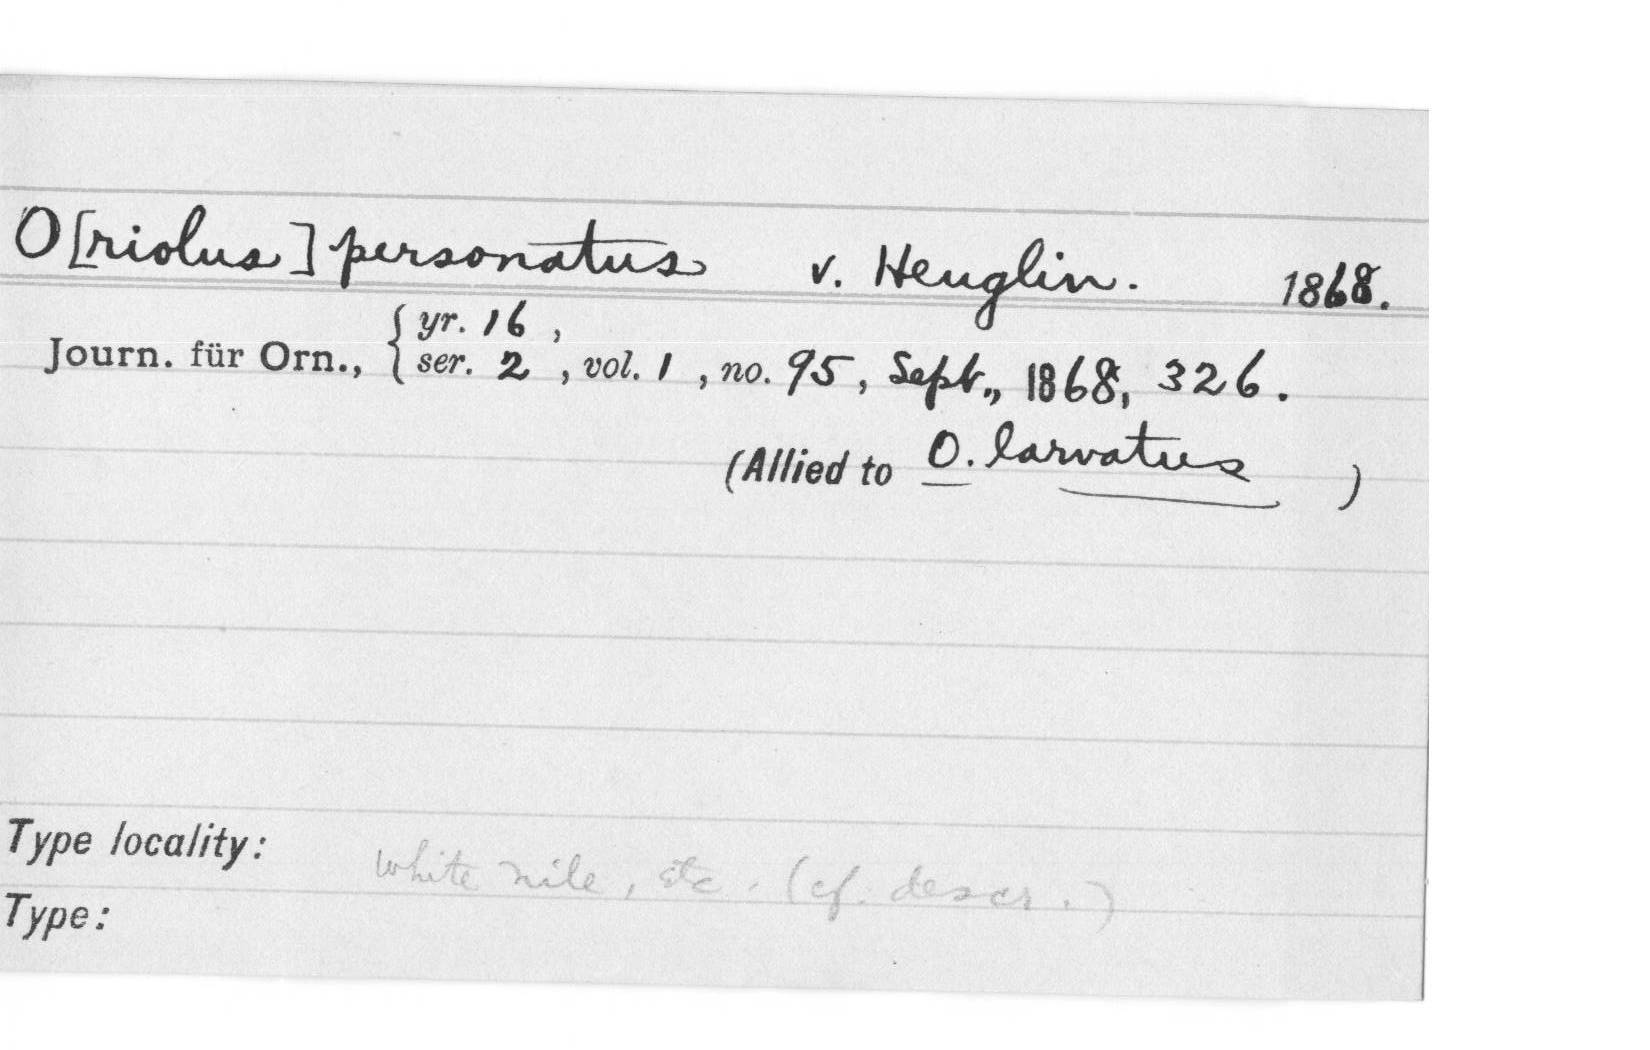 O[riolus] personatus v. Heuglin. 1868.
Journ. für Orn., { yr. 16 ,
ser. 2 , vol. 1 , no. 95, Sept., 1868, 326.
(Allied to O. larvatus )
Type locality: White nile, etc. (cf. descr.)
Type: